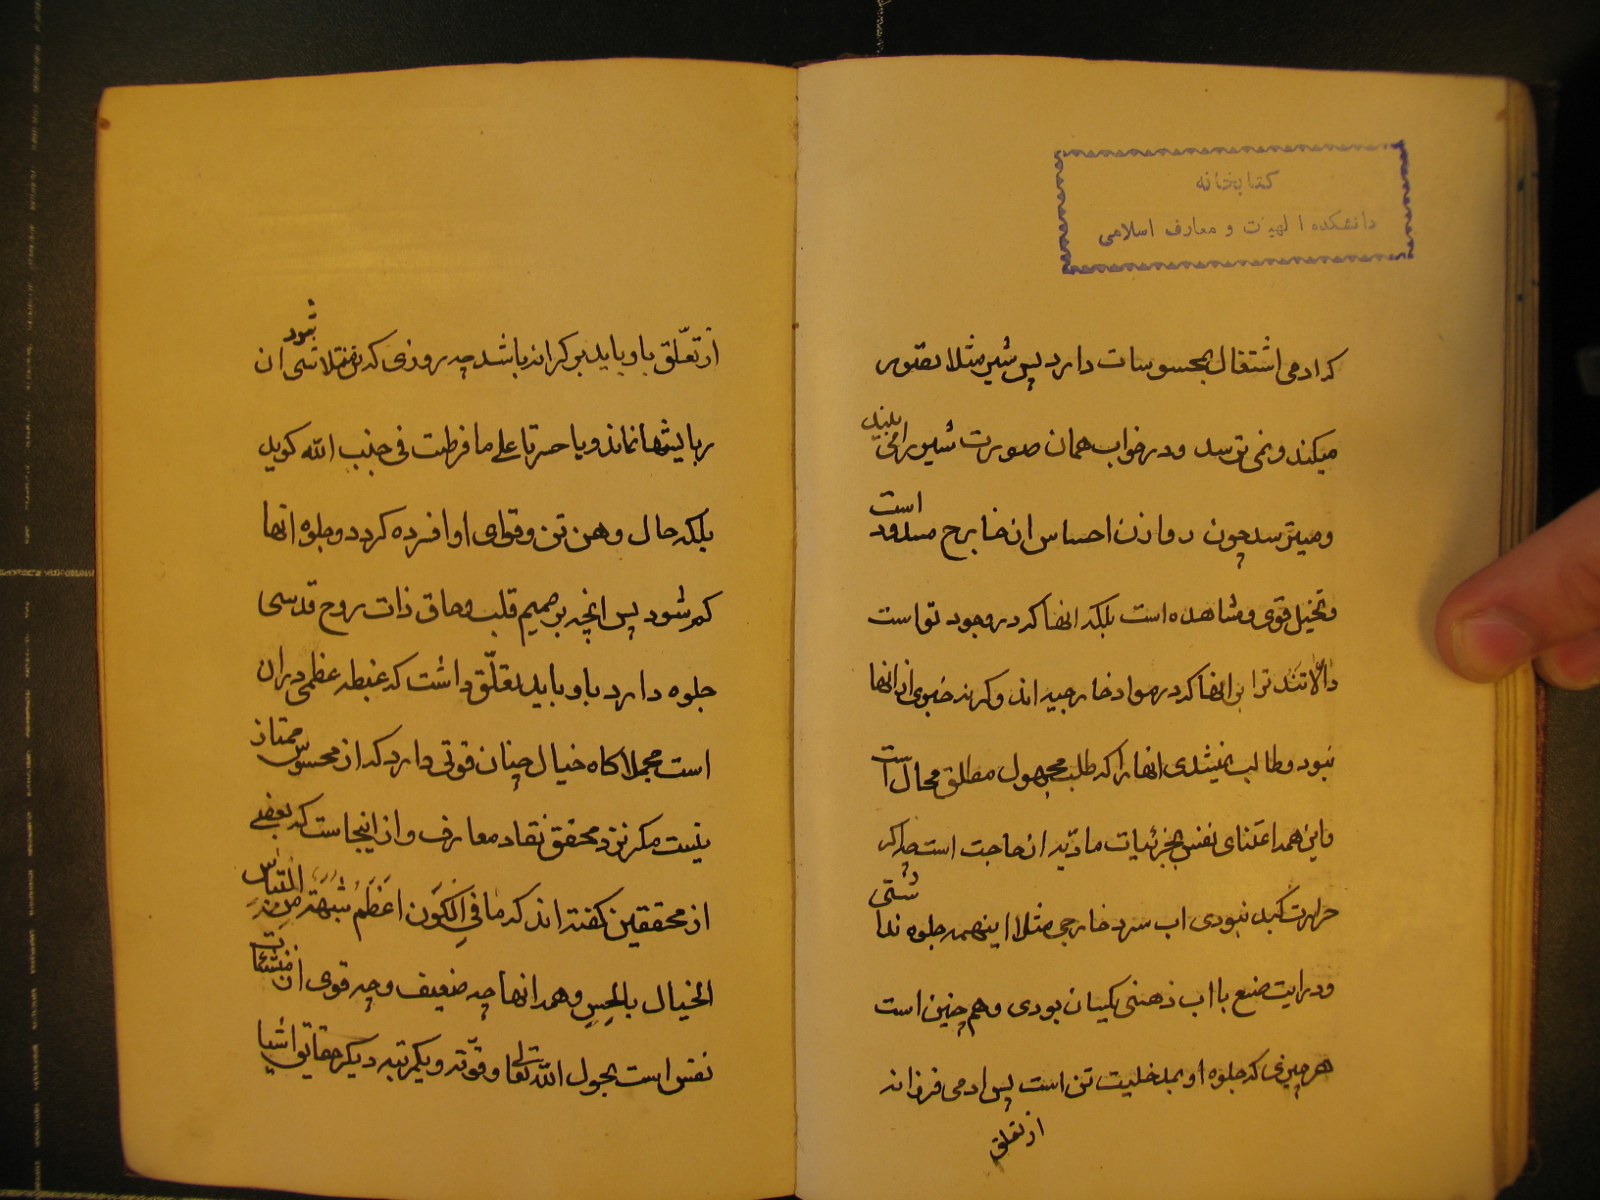 کتابخانه
دانشکده الهیات و معارف اسلامی
که ادمی اشتغال بمحسوسات دارد پس شیر مثلا تصور
میکند و نمی ترسد و در خواب همان صورت شیر را می بیند
و میترسد چون روازن احساس ان خارج مسدود است
و تخیل قوی و مشاهده است بلکه انها که در وجود تو است
دالاتند ترا بر انها که در مواد خارجیه اند و کرنه خبری از انها
نبود و طالب نمیشدی انها را که طلب مجهول مطلق محال است
و این همه اعتنای نفس بجزئیات مادیه از حاجت است چه اگر
حرارت کبد نبودی اب سرد خارجی مثلا اینهمه جلوه نداشتی
و درایت صنع با اب ذهنی یکسان بودی و هم چنین است
هر چیزی که جلوه او بمدخلیت تن است پس ادمی فرزانه
از تعلق
از تعلّق باو باید بر کرانه باشد چه روزی که تن متلاشی شود ان
ربایشها نماند و یا حسرتا علی ما فرطت فی جنب الله کوید
بلکه حال وهن تن و قوای او افسرده کردد و جلوه انها
کم شود پس انچه بر صمیم قلب و حاق ذات روح قدسی
جلوه دارد باو باید تعلّق داشت که غبطه عظمی دران
است مجملا کاه خیال چنان قوتی دارد که از محسوس ممتاز
نیست مکر نزد محقق نقاد معارف و از اینجاست که بعضی
از محققین کفته اند که ما فِی الکَون اَعظَمُ شُبهَة مِن التباس
الخیال بالحِسِ و همه انها چه ضعیف و چه قوی از منشئات
نفس است بحول الله تعالی و قوّته و یکمرتبه دیکر حقایق اشیا